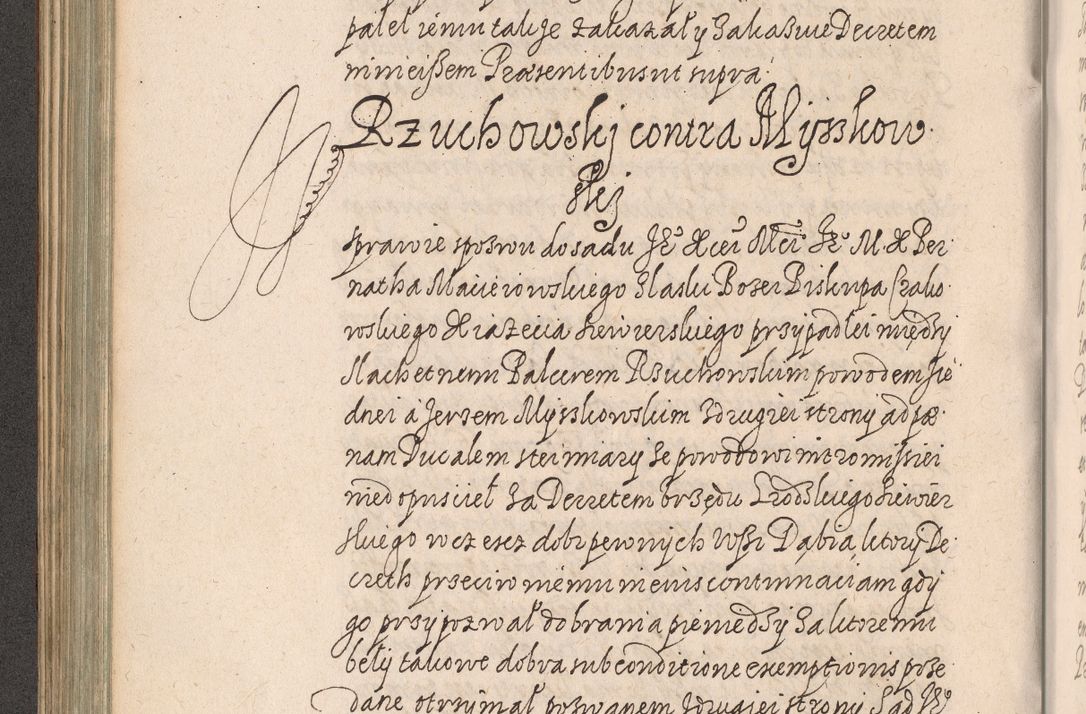 paleł iemu takze zakazał y zakazuie Decretem
ninieißem Præsentibus ut supra
Rzuchowskj contra Mysskow
skej
sprawie sposwu do sadu Je° Xcei Mci Je° M. X Ber
natha Macieiowskiego z laski Bozei Biskupa Crako
wskiego Xiazecia Siewierskiego przypadłei między
Slachetnem Balcerem Rzuchowskim powodem z ie
dnei a Jerzem Mysskowskim z drugiei strony ad pæ
nam Ducalem stei miary se powodowi intromissiei
niedopusciel za Decretem vrzędu Grodskiego Siewier
skiego w czesc dobr pewnych Wssi Dąbia, ktory De
creth przeciw niemu in eius contumaciam gdy
go przypozwał do brania pieniedzy za ktoremu
bely takowe dobra sub conditione exemptionis prze
dane otrzymał pozwanem z drugiei strony Sąd Je°